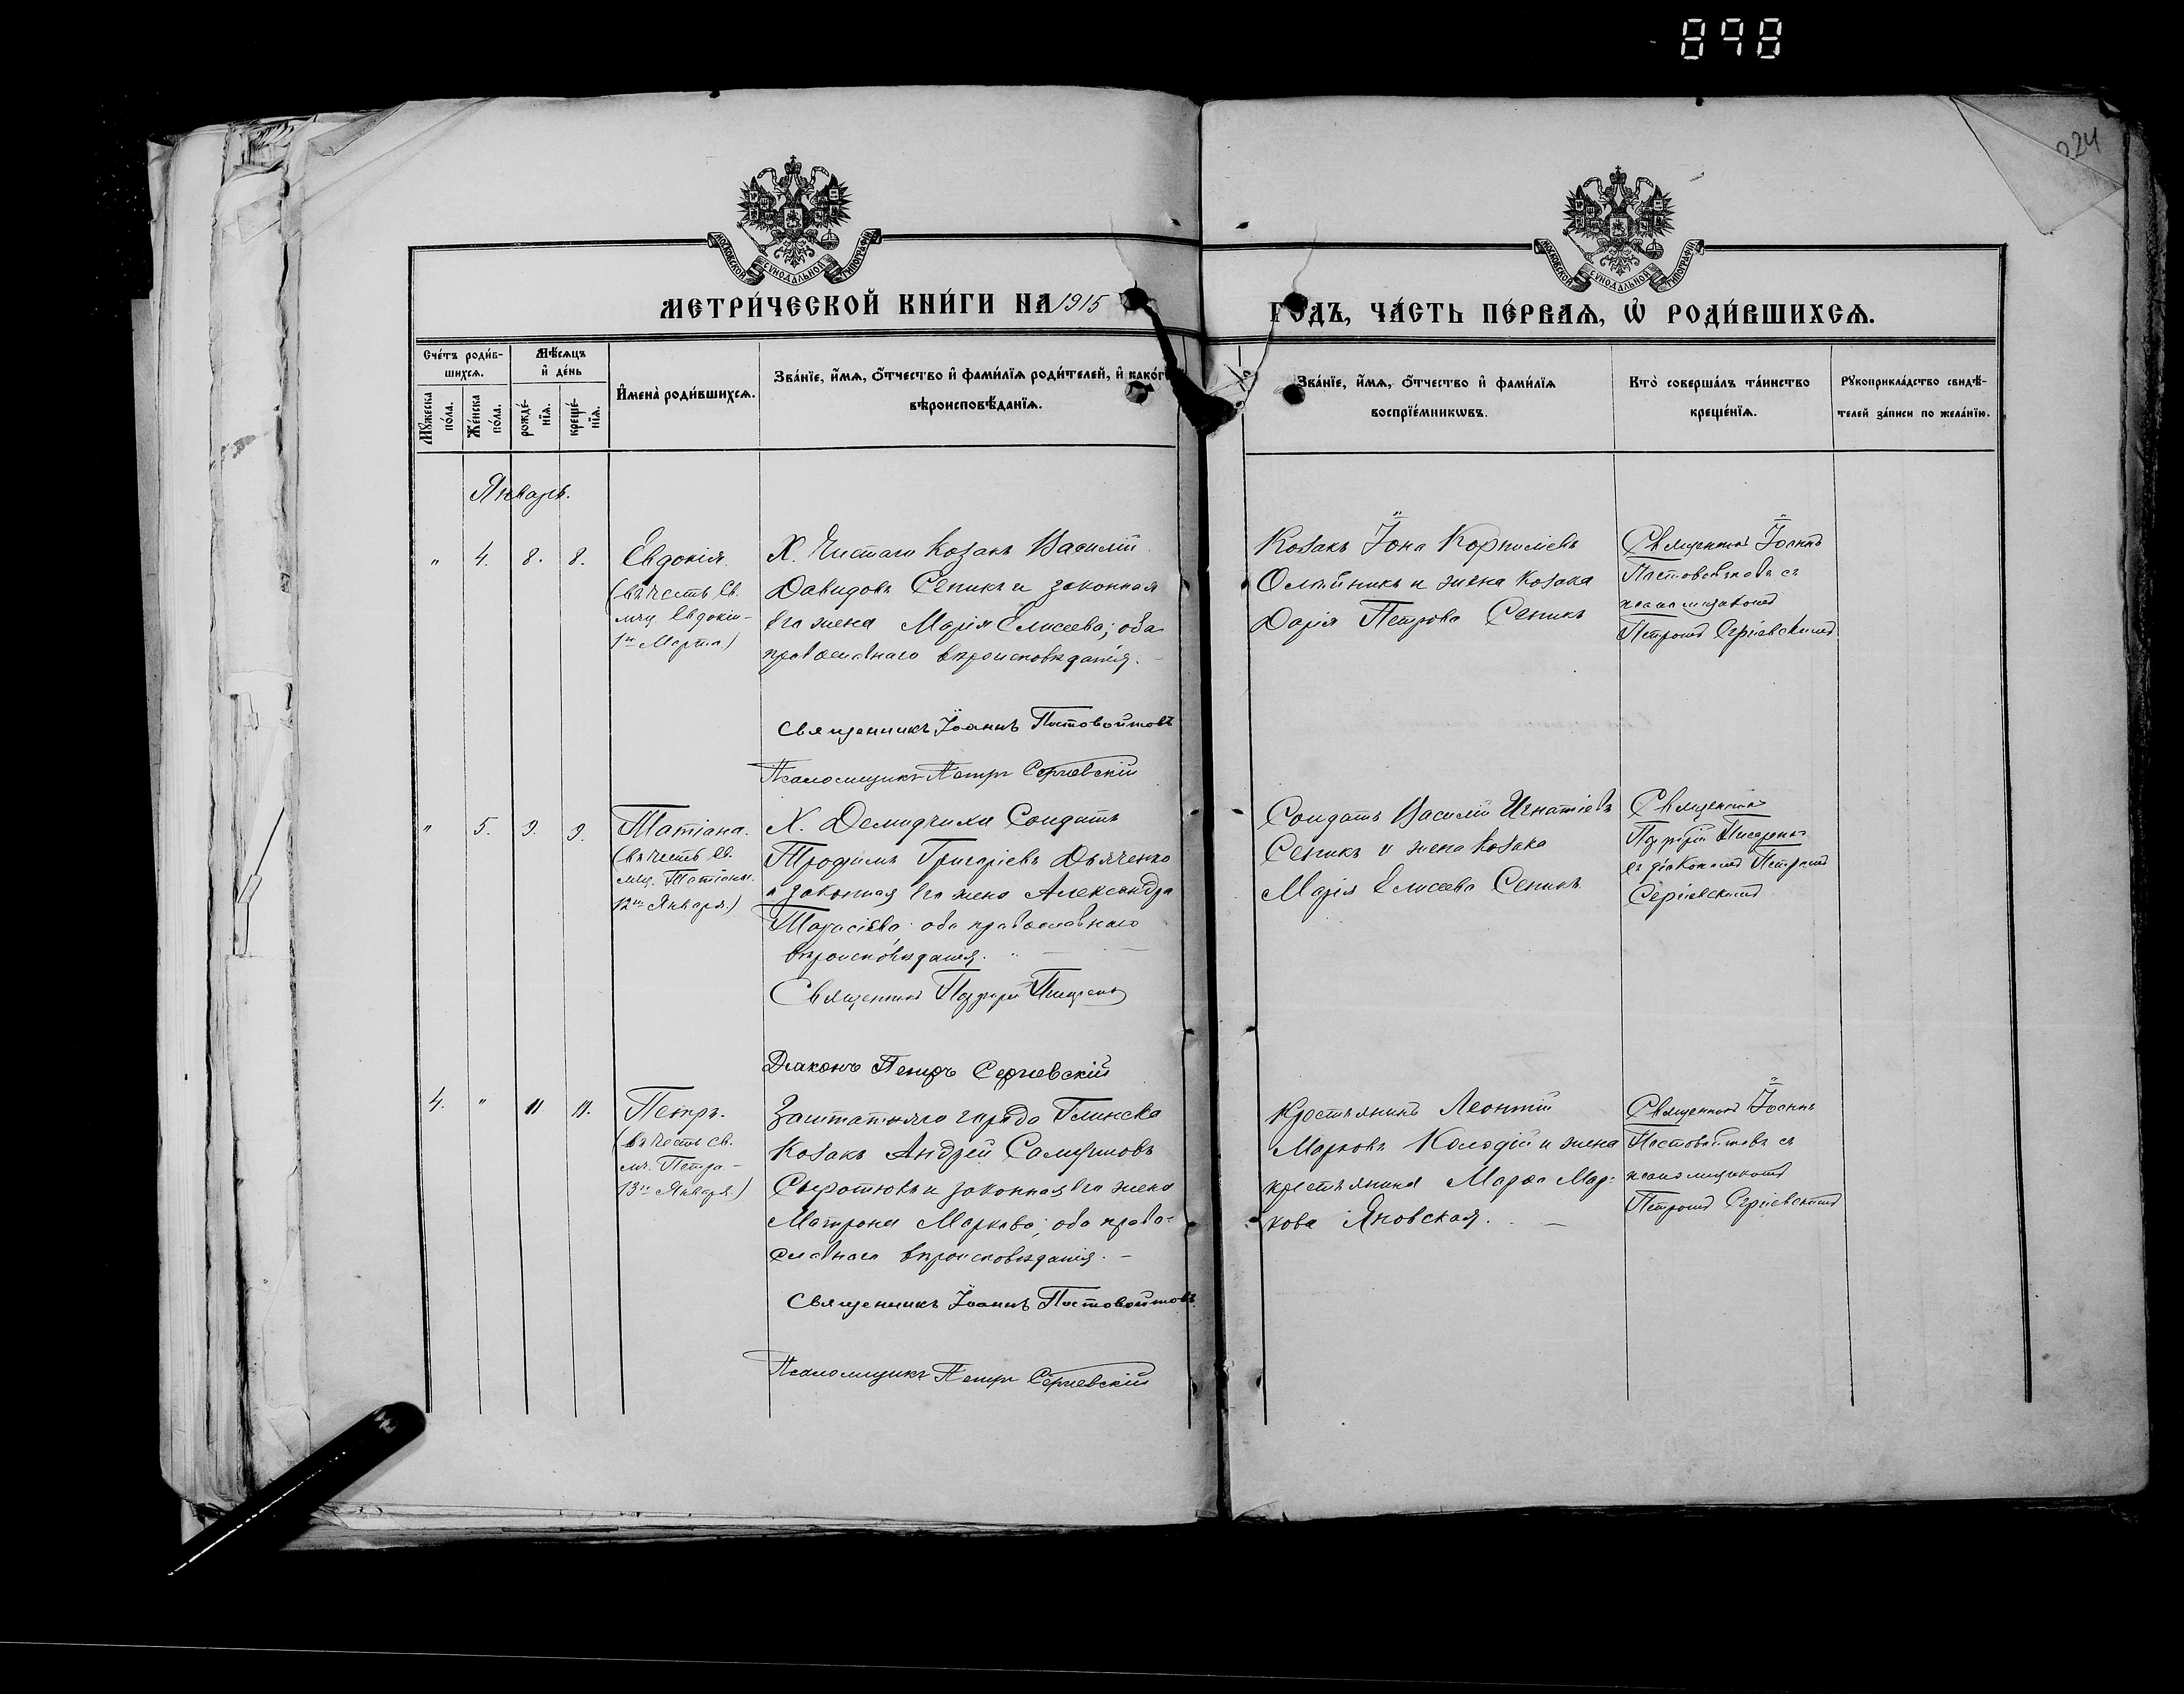 898
024
МОСКОВСКОЙ СѴНОДАЛЬНОЙ ТИПОГРАФІИ
МОСКОВСКОЙ СѴНОДАЛЬНОЙ ТИПОГРАФІИ
МЕТРИ́ЧЕСКОЙ КНИ́ГИ НА 1915 ГОДЪ, ЧА́СТЬ ПЕ́РВАѦ, Ѡ҆ РОДИ́ВШИХСѦ.
Сче́тъ роди́в-
шихсѧ.
Мꙋ́жеска по́ла.
Же́нска по́ла.
Мѣ́сѧцъ
и҆ де́нь
рожде́-
нїѧ.
креще́-
нїѧ.
И҆мена̀ роди́вшихсѧ.
Зва́нїе, и҆́мѧ, ѻ҆́тчество и҆ фами́лїѧ роди́телей, и҆ како́гѡ
вѣроисповѣ́данїѧ.
Зва́нїе, и҆́мѧ, ѻ҆́тчество и҆ фами́лїѧ
воспрїе́мникѡвъ.
Кто̀ соверша́лъ та́инство
креще́нїѧ.
Рꙋкоприкла́дство свидѣ́-
телей за́писи по жела́нїю.
Январь.
" 4. 8. 8.
Евдокія
(въ честь св.
мчц. Евдокіи-
1го Марта)
Х. Чистаги Козакъ Василій
Давидовъ Сепикъ и законная
его жена Марія Елисеева; оба
православнаго вѣроисповѣданія. –
Священникъ Іоаннъ Постовойтовъ
Псаломщикъ Петръ Сергіевскій
Козакъ Іона Корниліевъ
Олѣйникъ и жена козака
Дарія Петрова Сепикъ
Священникъ Іоаннъ
Постовойтовъ съ
псаломщикомъ
Петромъ Сергіевскимъ
" 5. 9. 9.
Татіана.
(въ честь св.
мчц. Татіаны.
12го Января.)
Х. Демидчихи Солдатъ
Трофимъ Григоріевъ Дьяченко
и законная его жена Александра
Тарасіева; оба православнаго
вѣроисповѣданія. " —
Священникъ Порфирій
Діаконъ Петръ Сергіевскій
Солдатъ Василій Игнатіевъ
Сепикъ и жена козака
Марія Елисеева Сепикъ.
Священникъ
Порфирій
съ діакономъ Петромъ
Сергіевскимъ
4. " 11 11.
Петръ.
(въ честь св.
мч. Петра –
13го Января.)
Заштатнаго города Глинска
Козакъ Андрей Самуиловъ
Сыротювъ и законная его жена
Матрона Маркова; оба право-
славнаго вѣроисповѣданія. –
Священникъ Іоаннъ Постовойтовъ
Псаломщикъ Петръ Сергіевскій
Крестьянинъ Леонтій
Марковъ Колодій и жена
крестьянина Марѳа Мар-
кова Яновская. –
Священникъ Іоаннъ
Постовойтовъ съ
псаломщикомъ
Петромъ Сергіевскимъ